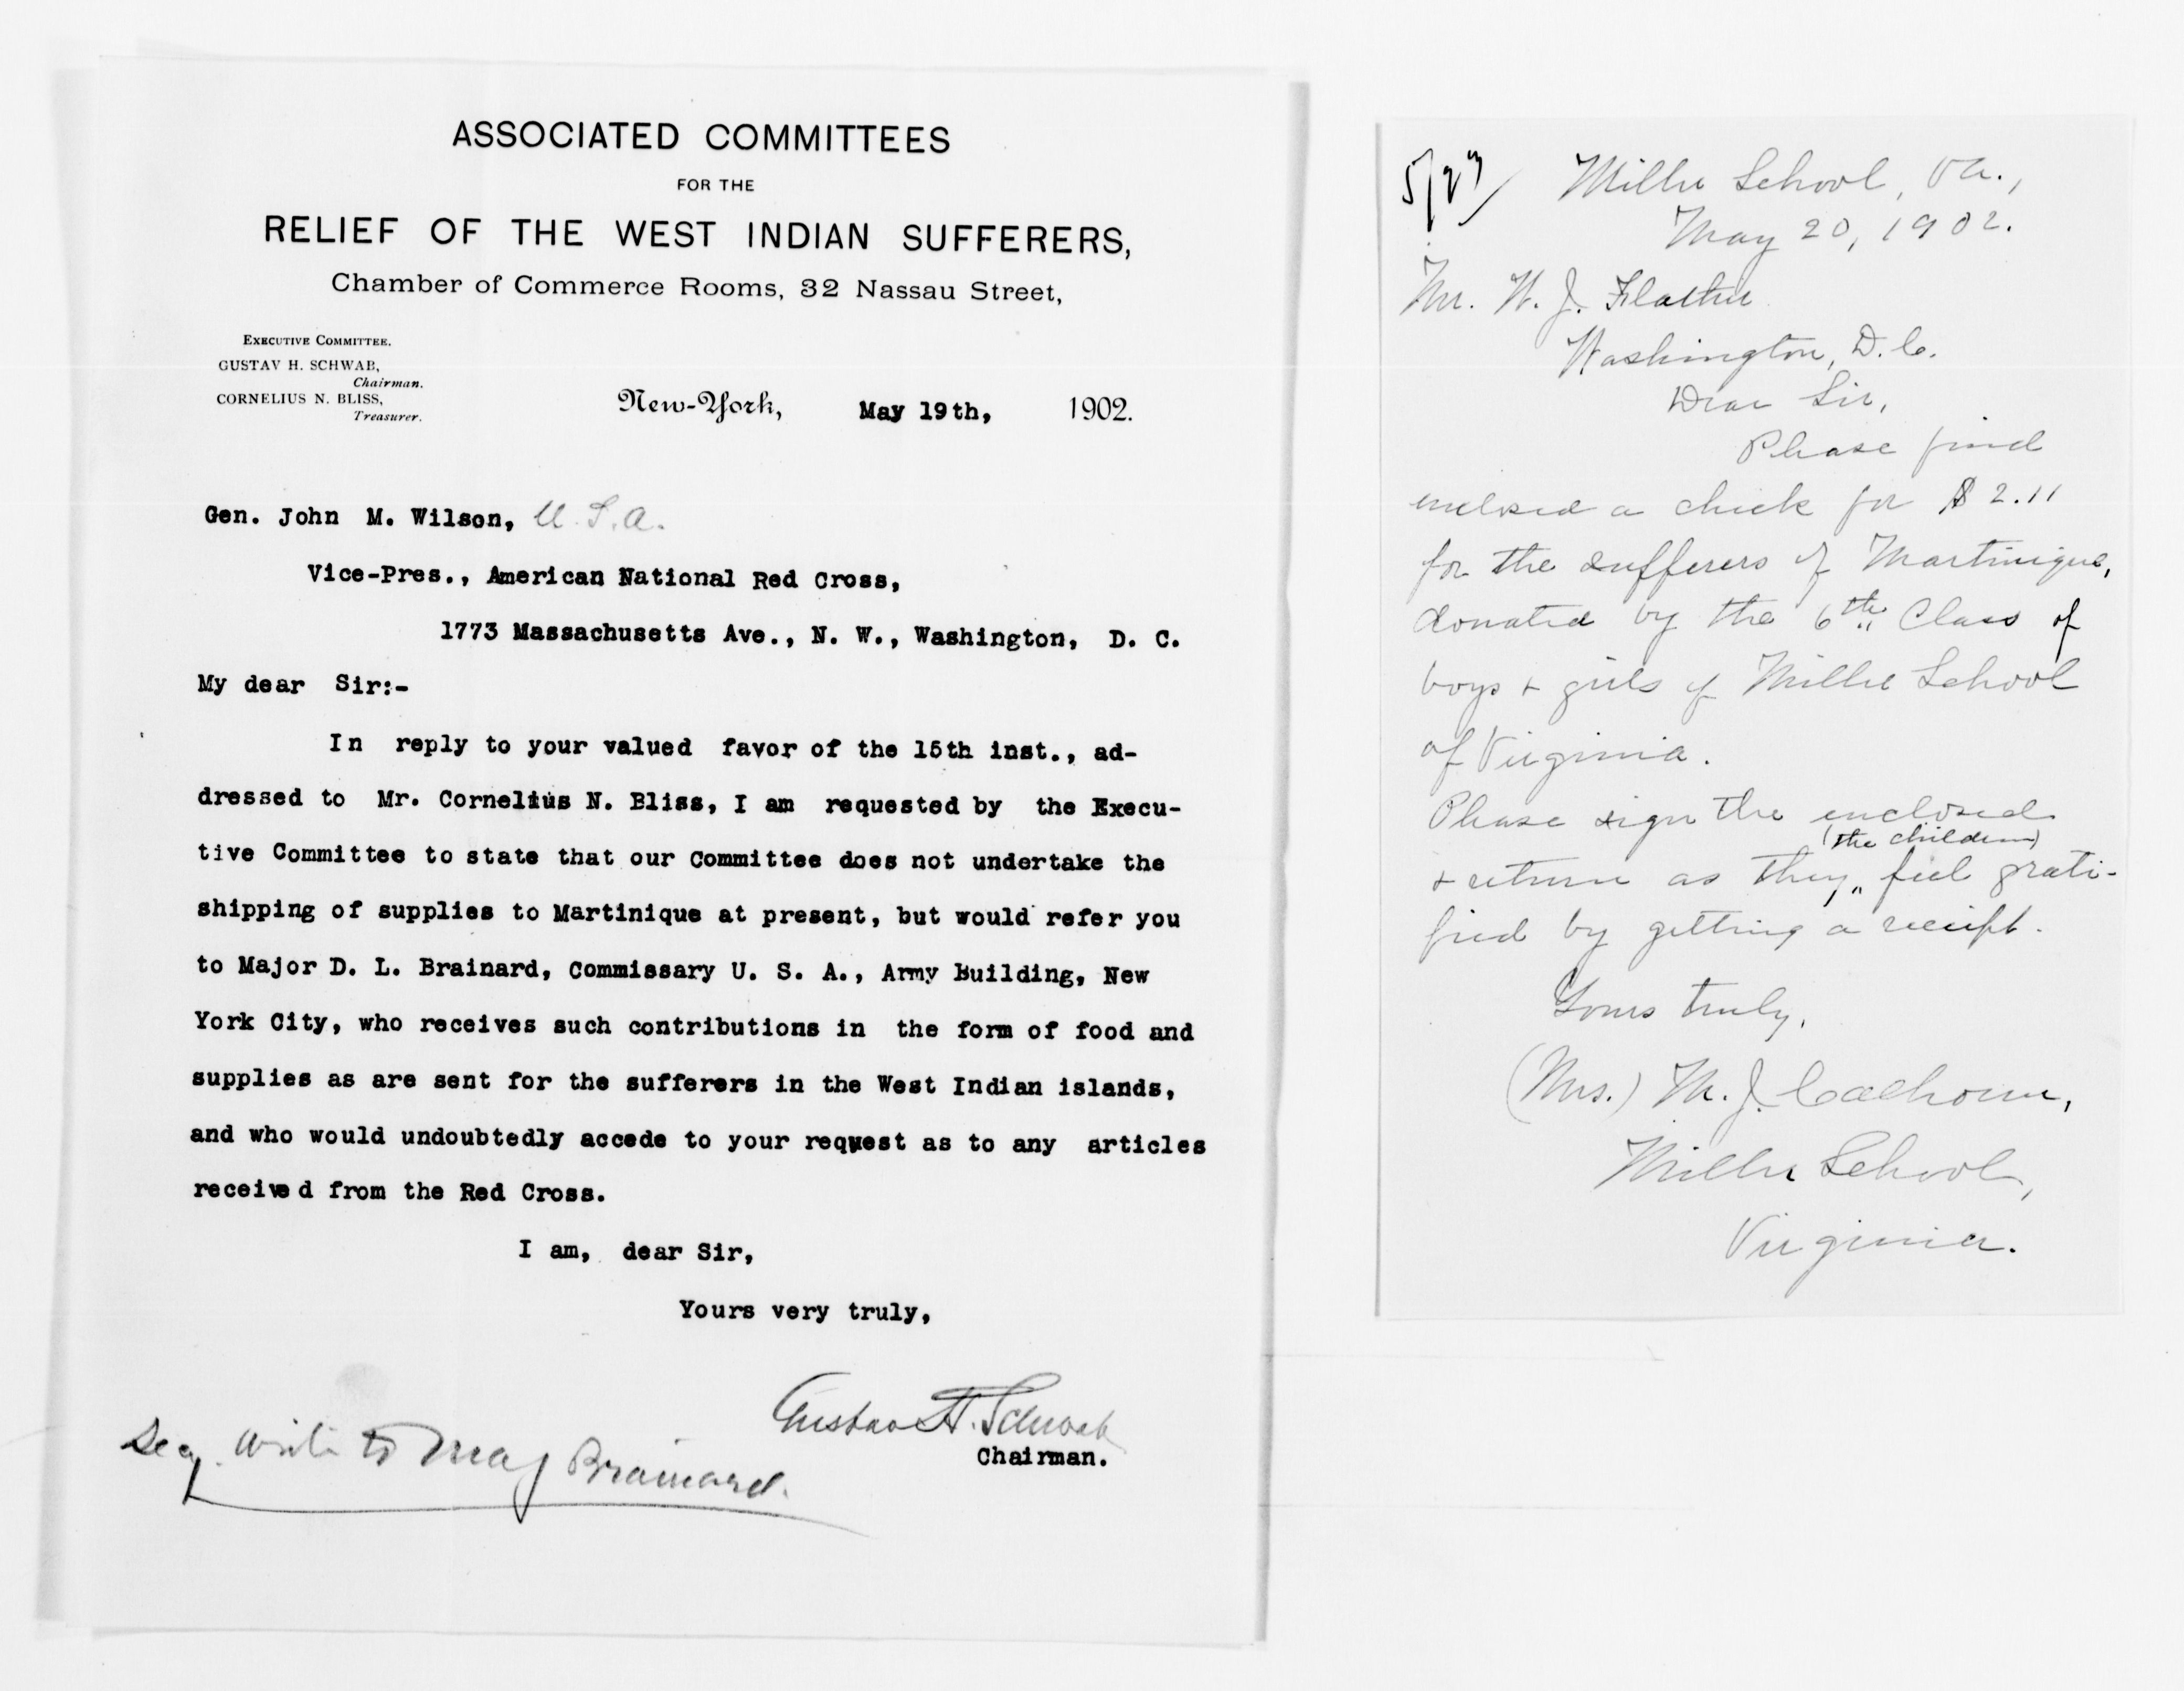 ASSOCIATED COMMITTEES
FOR THE
RELIEF OF THE WEST INDIAN SUFFERERS,
Chamber of Commerce Rooms, 32 Nassau Street,
EXECUTIVE COMMITTEE.
GUSTAV H. SCHWAB,
Chairman.
CORNELIUS N. BLISS,
Treasurer.
New-York, May 19th, 1902.
Gen. John M. Wilson, U.S.A.
Vice-Pres., American National Red Cross,
1773 Massachusetts Ave., N. W., Washington, D. C.
My dear Sir:-
In reply to your valued favor of the 15th inst., ad-
dressed to Mr. Cornelius N. Bliss, I am requested by the Execu-
tive Committee to state that our Committee does not undertake the
shipping of supplies to Martinique at present, but would refer you
to Major D. L. Brainard, Commissary U. S. A., Army Building, New
York City, who receives such contributions in the form of food and
supplies as are sent for the sufferers in the West Indian islands,
and who would undoubtedly accede to your request as to any articles
received from the Red Cross.
I am, dear Sir,
Yours very truly,
Gustav H. Schwab
Chairman.
Secy. write to Maj Brainard.
5/23
Miller School, Va.,
May 20, 1902.
Mr. W. J. Flather
Washington, D.C.
Dear Sir,
Please find
enclosed a check for $2.11
for the sufferers of Martinique,
donated by the 6th Class of
boys + girls of Miller School
of Virginia.
Please sign the enclosed
+ return as they (the children) feel grati-
fied by getting a receipt.
Yours truly,
(Mrs.) M. J. Calhoun,
Miller School,
Virginia.